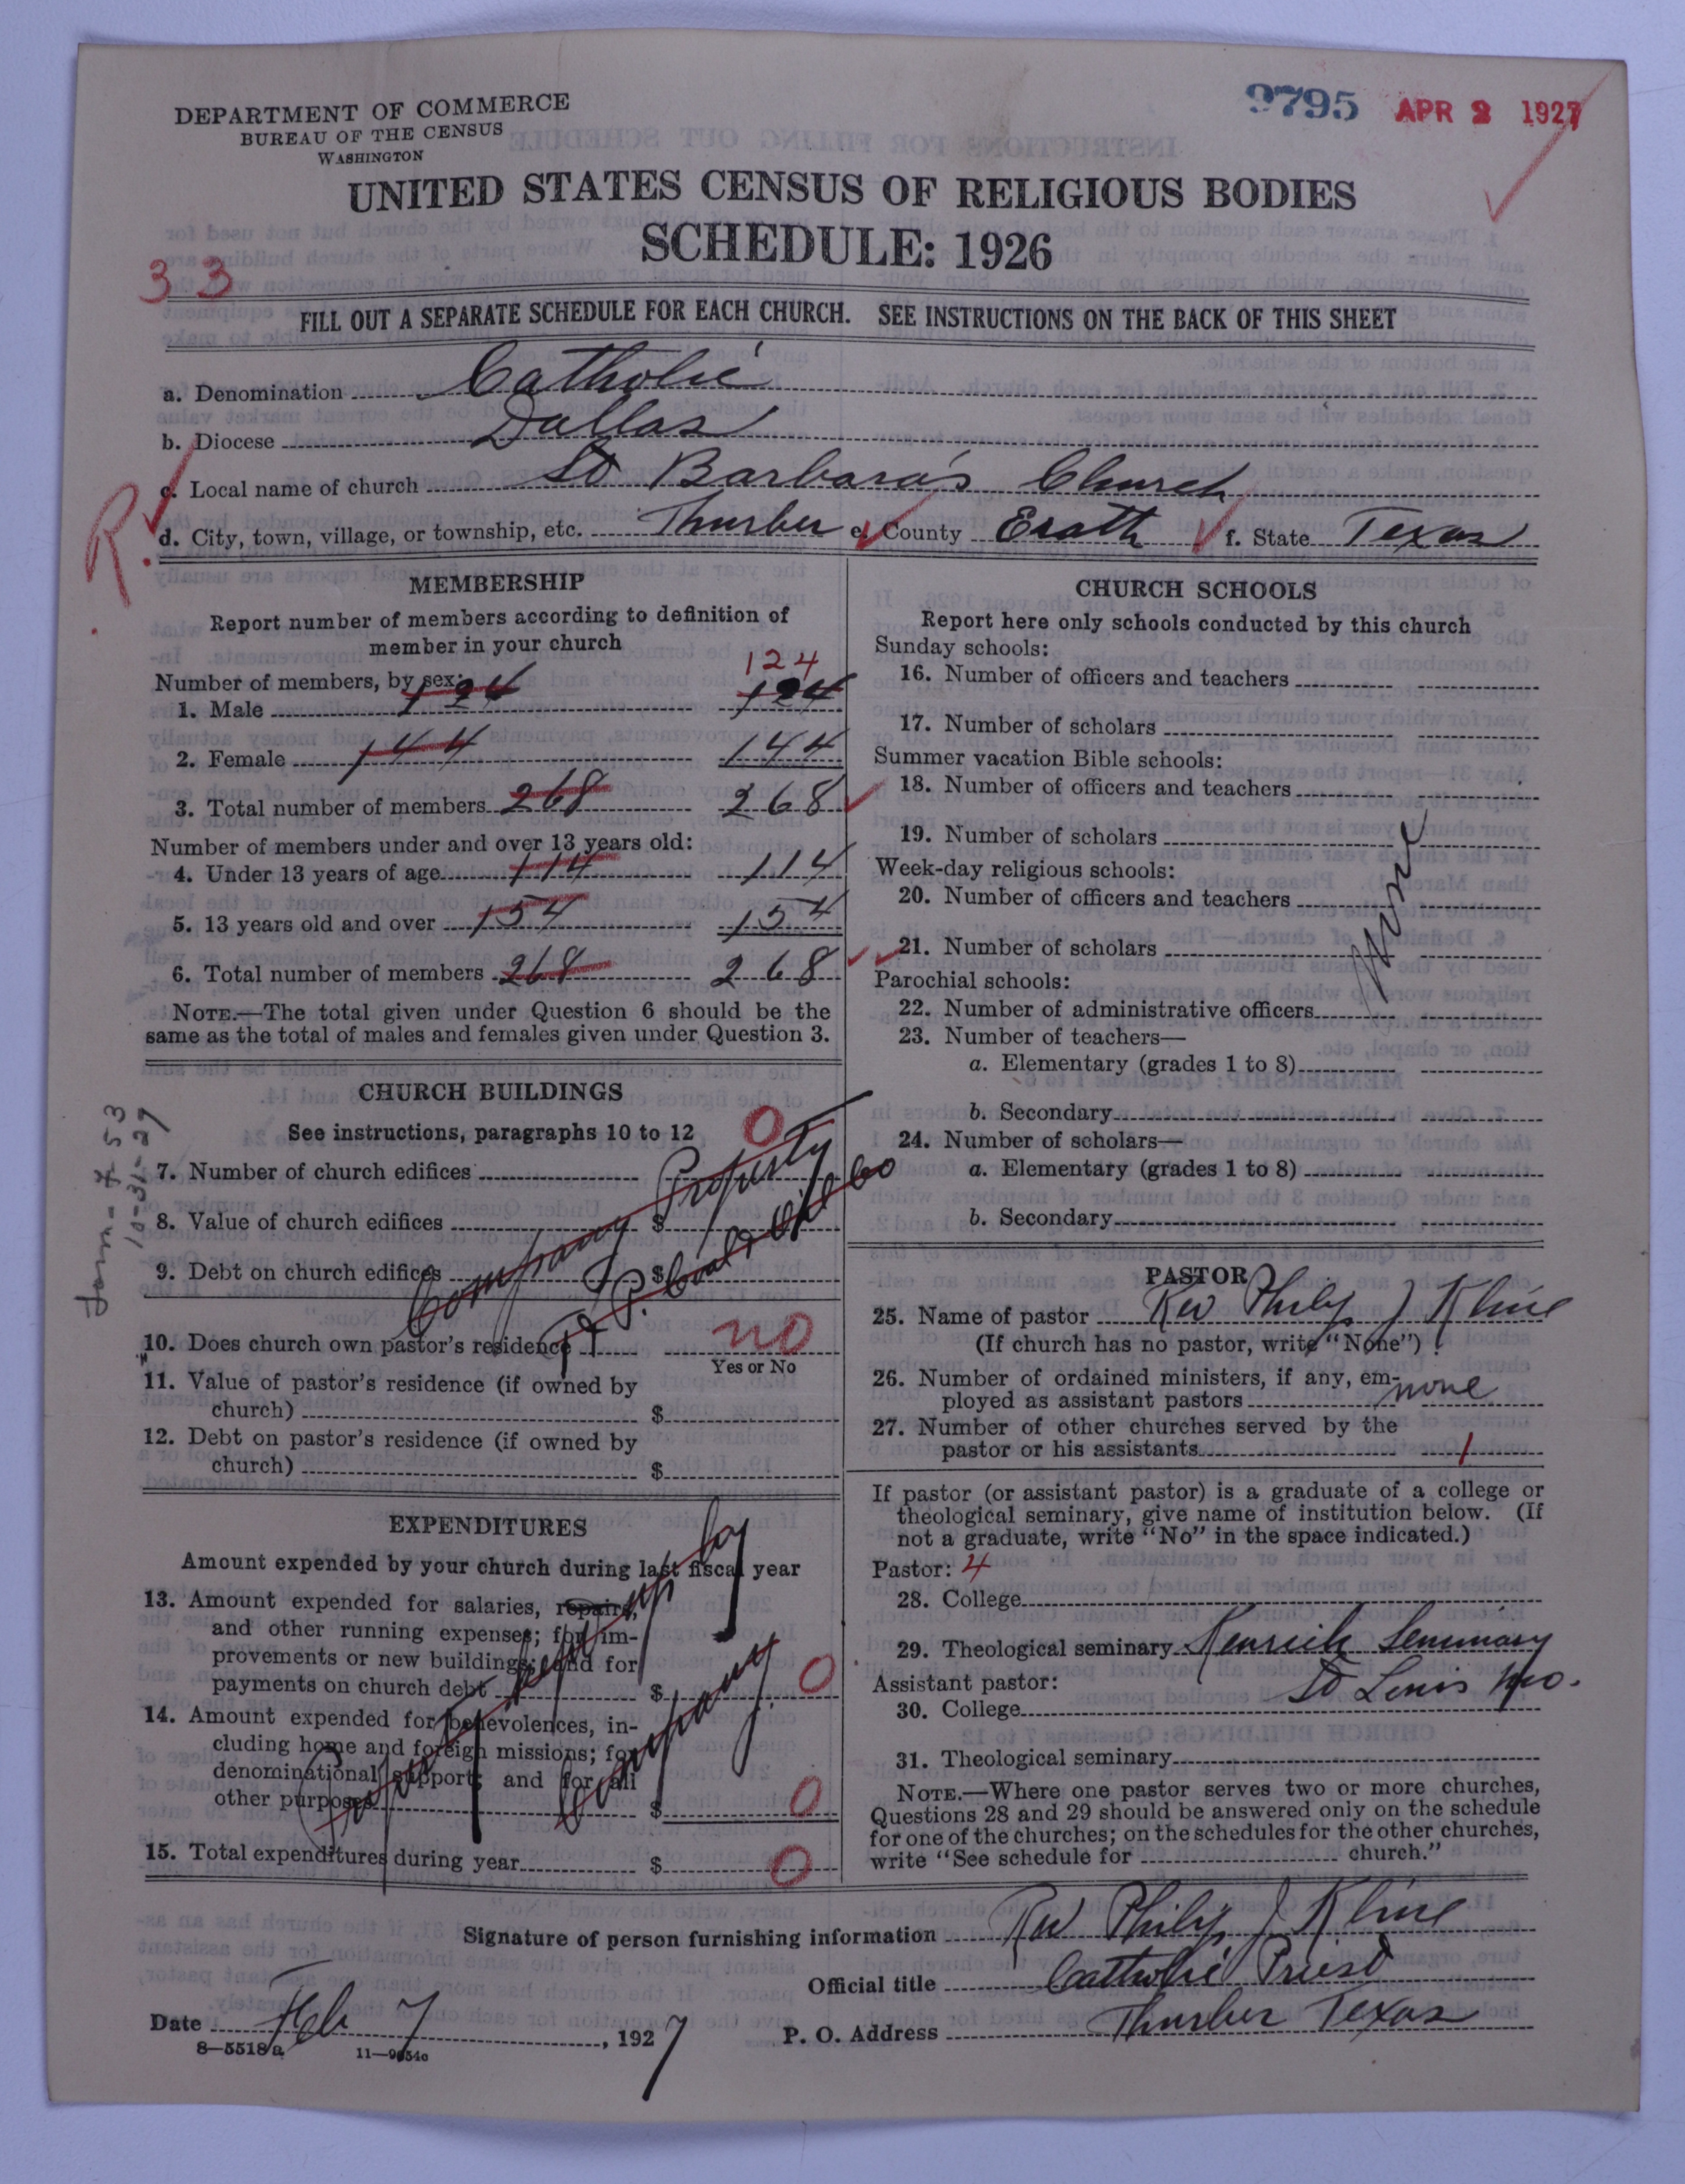 DEPARTMENT OF COMMERCE
BUREAU OF THE CENSUS
WASHINGTON
9795 APR 2 1927
UNITED STATES CENSUS OF RELIGIOUS BODIES
SCHEDULE: 1926
33
FILL OUT A SEPARATE SCHEDULE FOR EACH CHURCH. SEE INSTRUCTIONS ON THE BACK OF THIS SHEET
a. Denomination Catholic
b. Diocese Dallas
c. Local name of church St Barbara's Church
R.
d. City, town, village, or township, etc. Thurber e. County Erath f. State Texas
MEMBERSHIP
Report number of members according to definition of
member in your church
124
Number of members, by sex:
1. Male 124 124
2. Female 144 144
3. Total number of members 268 268
Number of members under and over 13 years old:
4. Under 13 years of age 114 114
5. 13 years old and over 154 154
6. Total number of members 268 268
NOTE.—The total given under Question 6 should be the
same as the total of males and females given under Question 3.
CHURCH BUILDINGS
See instructions, paragraphs 10 to 12
7. Number of church edifices 0
8. Value of church edifices $
9. Debt on church edifices $
Company Property
T. P. Coal & Oil Co
Form-453
10-31-27
10. Does church own pastor's residence? no
Yes or No
11. Value of pastor's residence (if owned by
church) $
12. Debt on pastor's residence (if owned by
church) $
EXPENDITURES
Amount expended by your church during last fiscal year
13. Amount expended for salaries, repairs,
and other running expenses; for im-
provements or new buildings; and for
payments on church debt $ 0
14. Amount expended for benevolences, in-
cluding home and foreign missions; for
denominational support; and for all
other purposes $ 0
by
Company
15. Total expenditures during year $ 0
CHURCH SCHOOLS
Report here only schools conducted by this church
Sunday schools:
16. Number of officers and teachers
17. Number of scholars
Summer vacation Bible schools:
18. Number of officers and teachers
19. Number of scholars
Week-day religious schools:
20. Number of officers and teachers
21. Number of scholars
None
Parochial schools:
22. Number of administrative officers
23. Number of teachers—
a. Elementary (grades 1 to 8)
b. Secondary
24. Number of scholars—
a. Elementary (grades 1 to 8)
b. Secondary
PASTOR
25. Name of pastor Rev Philip J Kline
(If church has no pastor, write "None")
26. Number of ordained ministers, if any, em-
ployed as assistant pastors none
27. Number of other churches served by the
pastor or his assistants 1
If pastor (or assistant pastor) is a graduate of a college or
theological seminary, give name of institution below. (If
not a graduate, write "No" in the space indicated.)
Pastor: 4
28. College
29. Theological seminary Kenrick Seminary
Assistant pastor: St Louis Mo.
30. College
31. Theological seminary
NOTE.—Where one pastor serves two or more churches,
Questions 28 and 29 should be answered only on the schedule
for one of the churches; on the schedules for the other churches,
write "See schedule for church."
Signature of person furnishing information Rev Philip J Kline
Official title Catholic Priest
Date Feb 7, 1927 P. O. Address Thurber Texas
8—5518a 11—9654c